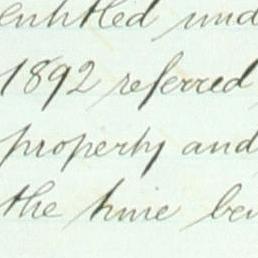 entitled und
1892 referred
property and
the time bei